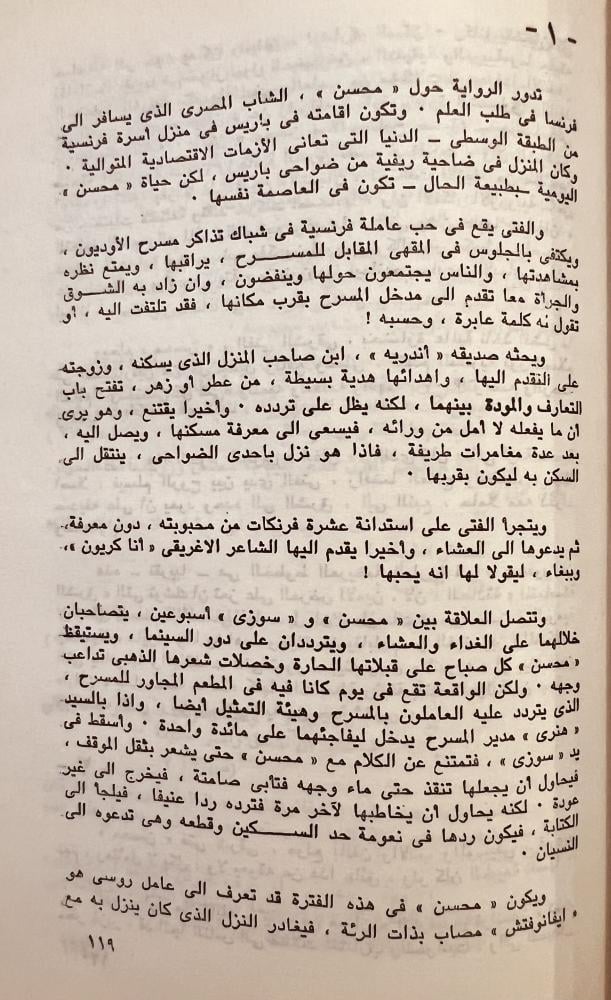 - ١ -
تدور الرواية حول « محسن » ، الشاب المصرى الذى يسافر الى
فرنسا فى طلب العلم · وتكون اقامته فى باريس فى منزل أسرة فرنسية
من الطبقة الوسطى – الدنيا التى تعانى الأزمات الاقتصادية المتوالية ·
وكان المنزل فى ضاحية ريفية من ضواحى باريس ، لكن حياة « محسن »
اليومية – بطبيعة الحال – تكون فى العاصمة نفسها ·
والفتى يقع فى حب عاملة فرنسية فى شباك تذاكر مسرح الأوديون ،
ويكتفى بالجلوس فى المقهى المقابل للمسرح ، يراقبها ، ويمتع نظره
بمشاهدتها ، والناس يجتمعون حولها وينفضون ، وان زاد به الشوق
والجرأة معا تقدم الى مدخل المسرح بقرب مكانها ، فقد تلتفت اليه ، أو
تقول له كلمة عابرة ، وحسبه !
ويحثه صديقه « أندريه » ، ابن صاحب المنزل الذى يسكنه ، وزوجته
على التقدم اليها ، واهدائها هدية بسيطة ، من عطر أو زهر ، تفتح باب
التعارف والمودة بينهما ، لكنه يظل على تردده · وأخيرا يقتنع ، وهو يرى
أن ما يفعله لا أمل من ورائه ، فيسعى الى معرفة مسكنها ، ويصل اليه ،
بعد عدة مغامرات طريفة ، فاذا هو نزل باحدى الضواحى ، ينتقل الى
السكن به ليكون بقربها ·
ويتجرأ الفتى على استدانة عشرة فرنكات من محبوبته ، دون معرفة،
ثم يدعوها الى العشاء ، وأخيرا يقدم اليها الشاعر الاغريقى « أنا كريون »،
وببغاء ، ليقولا لها انه يحبها !
وتتصل العلاقة بين « محسن » و « سوزى » أسبوعين ، يتصاحبان
خلالهما على الغداء والعشاء ، ويترددان على دور السينما ، ويستيقظ
« محسن » كل صباح على قبلاتها الحارة وخصلات شعرها الذهبى تداعب
وجهه · ولكن الواقعة تقع فى يوم كانا فيه فى المطعم المجاور للمسرح ،
الذى يتردد عليه العاملون بالمسرح وهيئة التمثيل أيضا ، واذا بالسيد
« هنرى » مدير المسرح يدخل ليفاجئهما على مائدة واحدة · وأسقط فى
يد « سوزى » ، فتمتنع عن الكلام مع « محسن » حتى يشعر بثقل الموقف ،
فيحاول أن يجعلها تنقذ حتى ماء وجهه فتأبى صامتة ، فيخرج الى غير
عودة · لكنه يحاول أن يخاطبها لآخر مرة فترده ردا عنيفا ، فيلجأ الى
الكتابة ، فيكون ردها فى نعومة حد السكين وقطعه وهى تدعوه الى
النسيان ·
ويكون « محسن » فى هذه الفترة قد تعرف الى عامل روسى هو
« ايفانوفتش » مصاب بذات الرئة ، فيغادر النزل الذى كان ينزل به مع
١١٩